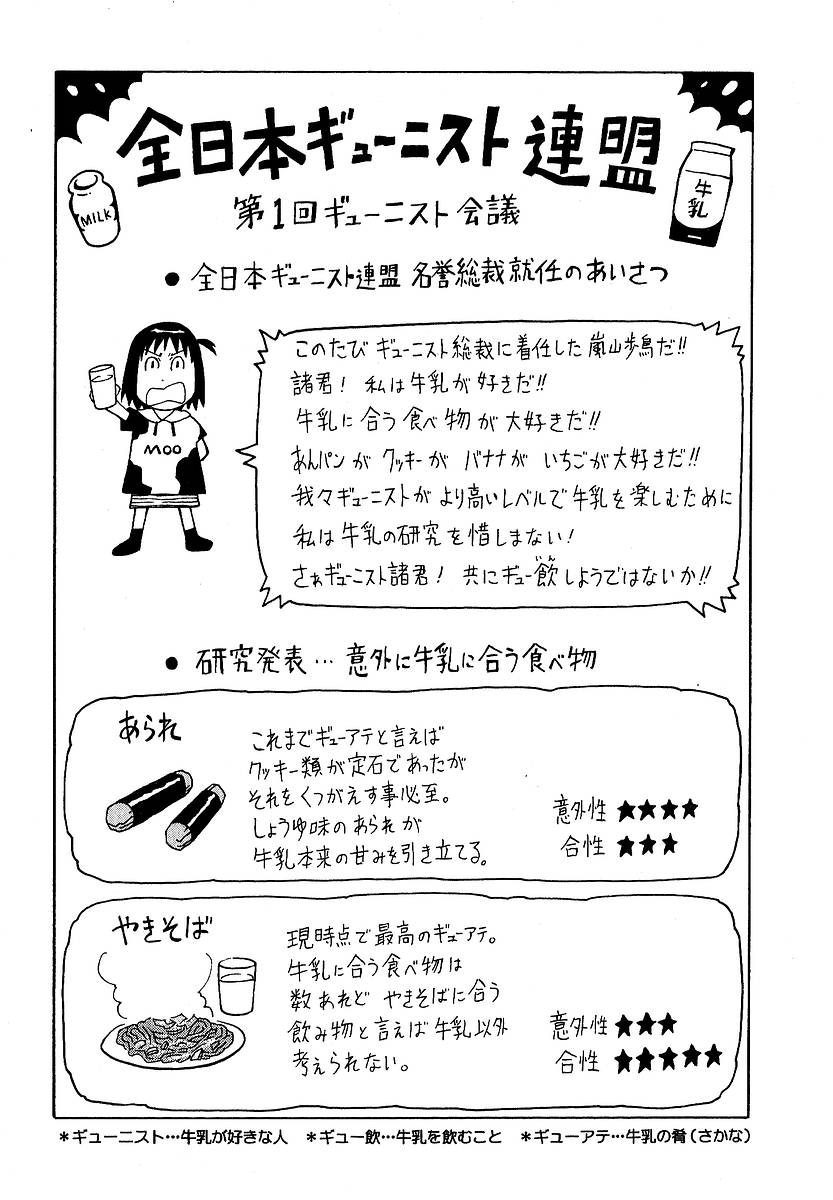 全日本ギューニスト連盟
MILK
牛乳
第1回ギューニスト会議
● 全日本ギューニスト連盟 名誉総裁就任のあいさつ
MOO
このたび ギューニスト総裁に着任した嵐山歩鳥だ!!
諸君! 私は牛乳が好きだ!!
牛乳に合う食べ物が大好きだ!!
あんパンが クッキーが バナナが いちごが大好きだ!!
我々ギューニストが より高いレベルで牛乳を楽しむために
私は牛乳の研究を惜しまない!
さぁギューニスト諸君! 共にギュー飲しようではないか!!
いん
● 研究発表… 意外に牛乳に合う食べ物
あられ
これまでギューアテと言えば
クッキー類が定石であったが
それをくつがえす事必至。
しょうゆ味のあられが
牛乳本来の甘みを引き立てる。
意外性 ★★★★
合性 ★★★
やきそば
現時点で最高のギューアテ。
牛乳に合う食べ物は
数あれど やきそばに合う
飲み物と言えば牛乳以外
考えられない。
意外性 ★★★
合性 ★★★★★
＊ギューニスト…牛乳が好きな人 ＊ギュー飲…牛乳を飲むこと ＊ギューアテ…牛乳の肴(さかな)